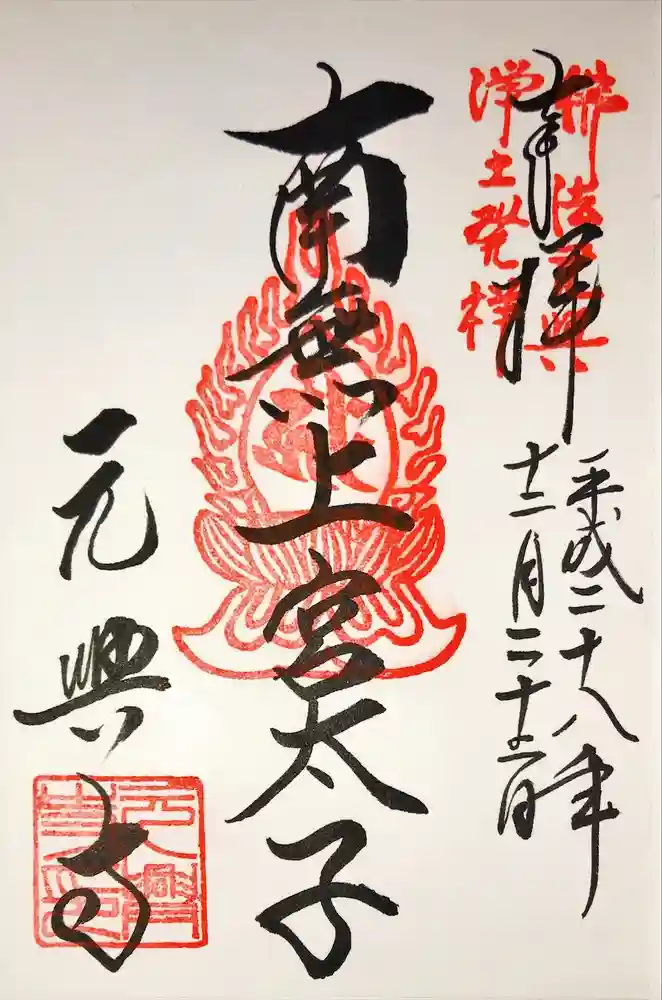 佛法元興
浄土発祥
奉拝
平成二十八年
十二月二十三日
南無上宮太子
元興寺